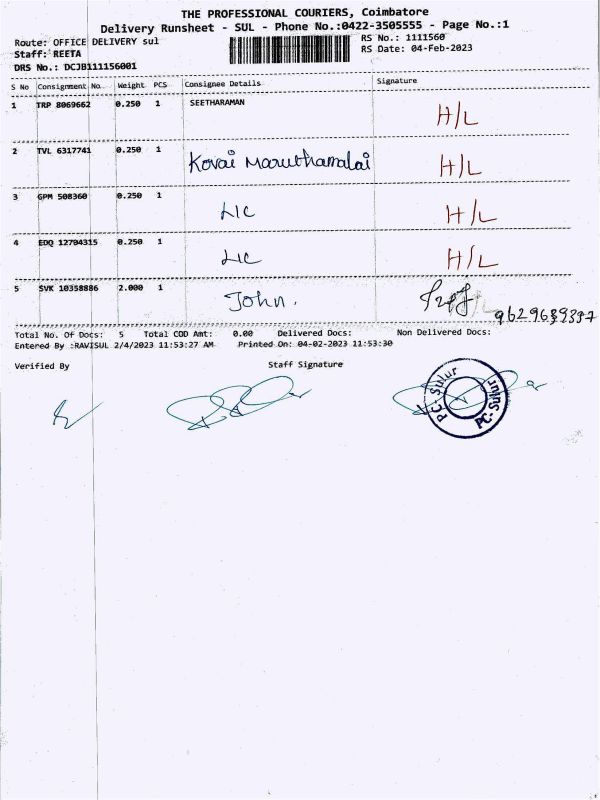 THE PROFESSIONAL COURIERS, Coimbatore
Delivery Runsheet - SUL - Phone No.:0422-3505555 - Page No.:1
Route: OFFICE DELIVERY sul
RS No.: 1111560
Staff: REETA
RS Date: 04-Feb-2023
DRS No.: DCJB111156001
S No Consignment No Weight PCS Consignee Details Signature
1 TRP 8069662 0.250 1 SEETHARAMAN H/L
2 TVL 6317741 0.250 1 Kovai Maruthamalai H/L
3 GPM 508360 0.250 1 LIC H/L
4 EDQ 12704315 0.250 1 LIC H/L
5 SVK 10358886 2.000 1 John. 9629689397
Total No. Of Docs: 5 Total COD Amt: 0.00 Delivered Docs: Non Delivered Docs:
Entered By :RAVISUL 2/4/2023 11:53:27 AM Printed On: 04-02-2023 11:53:30
Verified By Staff Signature
PC-Sulur
PC-Sulur